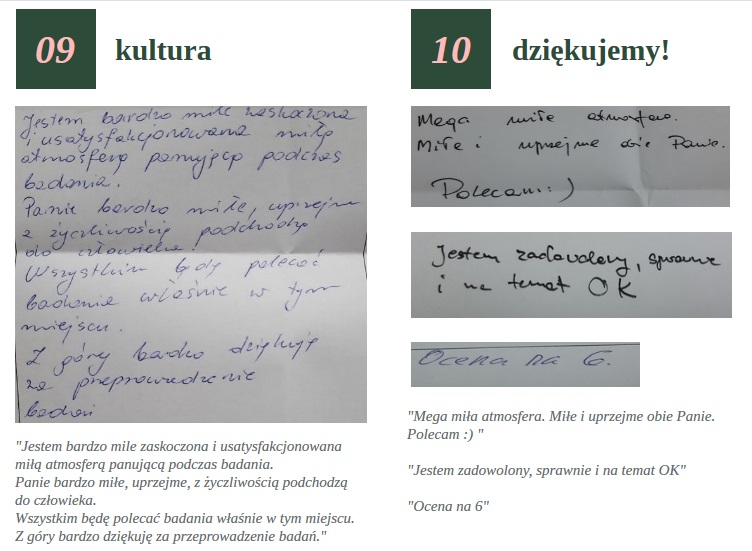 09
kultura
Jestem bardzo mile zaskoczona
i usatysfakcjonowana miłą
atmosferą panującą podczas
badania.
Panie bardzo miłe, uprzejme
z życzliwością podchodzą
do człowieka!
Wszystkim będę polecać
badania właśnie w tym
miejscu.
Z góry bardzo dziękuję
za przeprowadzenie
badań
"Jestem bardzo mile zaskoczona i usatysfakcjonowana
miłą atmosferą panującą podczas badania.
Panie bardzo miłe, uprzejme, z życzliwością podchodzą
do człowieka.
Wszystkim będę polecać badania właśnie w tym miejscu.
Z góry bardzo dziękuję za przeprowadzenie badań."
10
dziękujemy!
Mega miła atmosfera.
Miłe i uprzejme obie Panie.
Polecam :)
Jestem zadowolony, sprawnie
i na temat OK
Ocena na 6.
"Mega miła atmosfera. Miłe i uprzejme obie Panie.
Polecam :) "
"Jestem zadowolony, sprawnie i na temat OK"
"Ocena na 6"